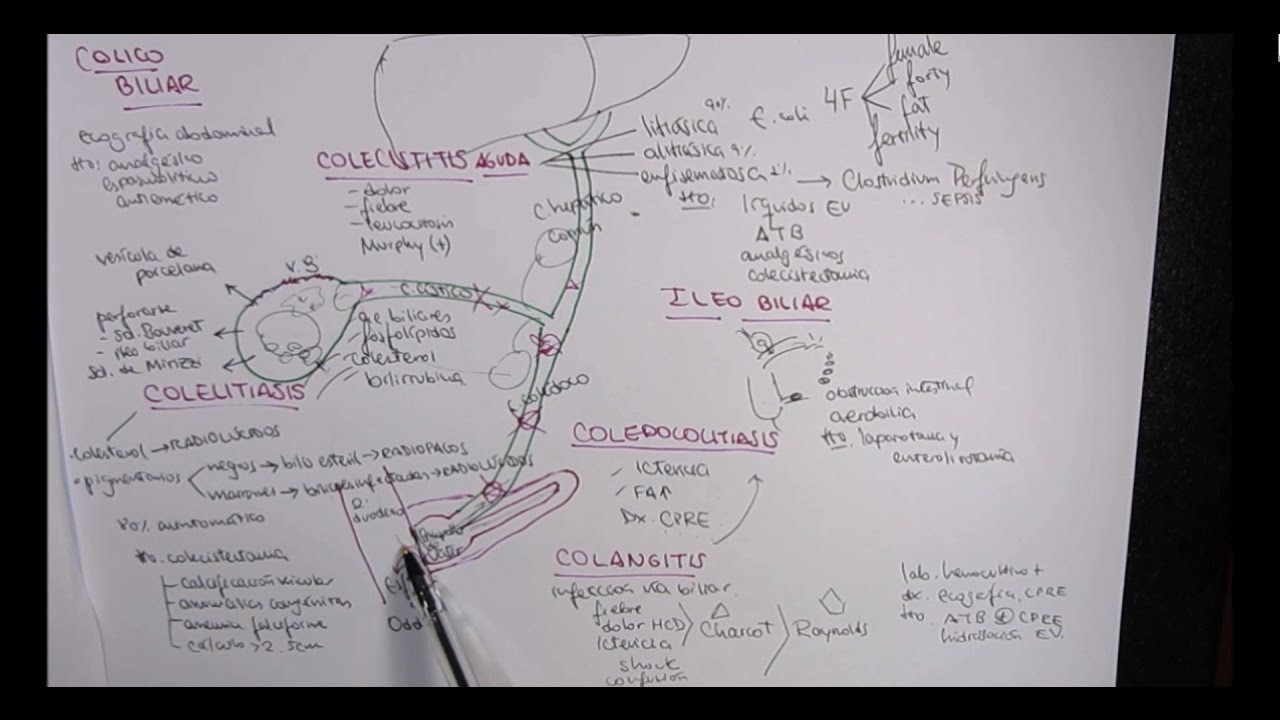 COLICO
BILIAR
ecografia abdominal
tto: analgésico
espasmolítico
antiemético
COLECISTITIS AGUDA
- dolor
- fiebre
- leucocitosis
Murphy (+)
litiásica 90%
E. coli
alitiásica 9%
enfisematosa 1%
→ Clostridium Perfringens
... SEPSIS
4F
female
forty
fat
fertility
tto:
líquidos EV
ATB
analgésicos
colecistectomia
C. hepático
común
V.B
C. cístico
C. colédoco
vesícola de
porcelana
perforarse
- sd. Bouveret
- ileo biliar
sd. de Mirizzi
ac biliares
fosfolípidos
colesterol
bilirrubina
COLELITIASIS
. colesterol → RADIOLUCIDOS
• pigmentarios
negros → bilis esteril → RADIOPACOS
marrones → bilis infectadas → RADIOLUCIDOS
80% asintomático
tto. colecistectomia
calcificación vesicular
anomalias congénitas
anemia falciforme
cálculo > 2.5cm
2.
duodeno
Ampolla
de
Vater
Oddi
ILEO BILIAR
obstruccion intestinal
aerobilia
tto. laparotomia y
enterolitotomia
COLEDOCOLITIASIS
Ictericia
FA↑
Dx. CPRE
COLANGITIS
infeccion via biliar
fiebre
dolor HCD
Ictericia
Charcot
shock
confusión
Reynolds
lab. hemocultivo +
dx. ecografia, CPRE
tto. ATB + CPRE
hidratación EV.